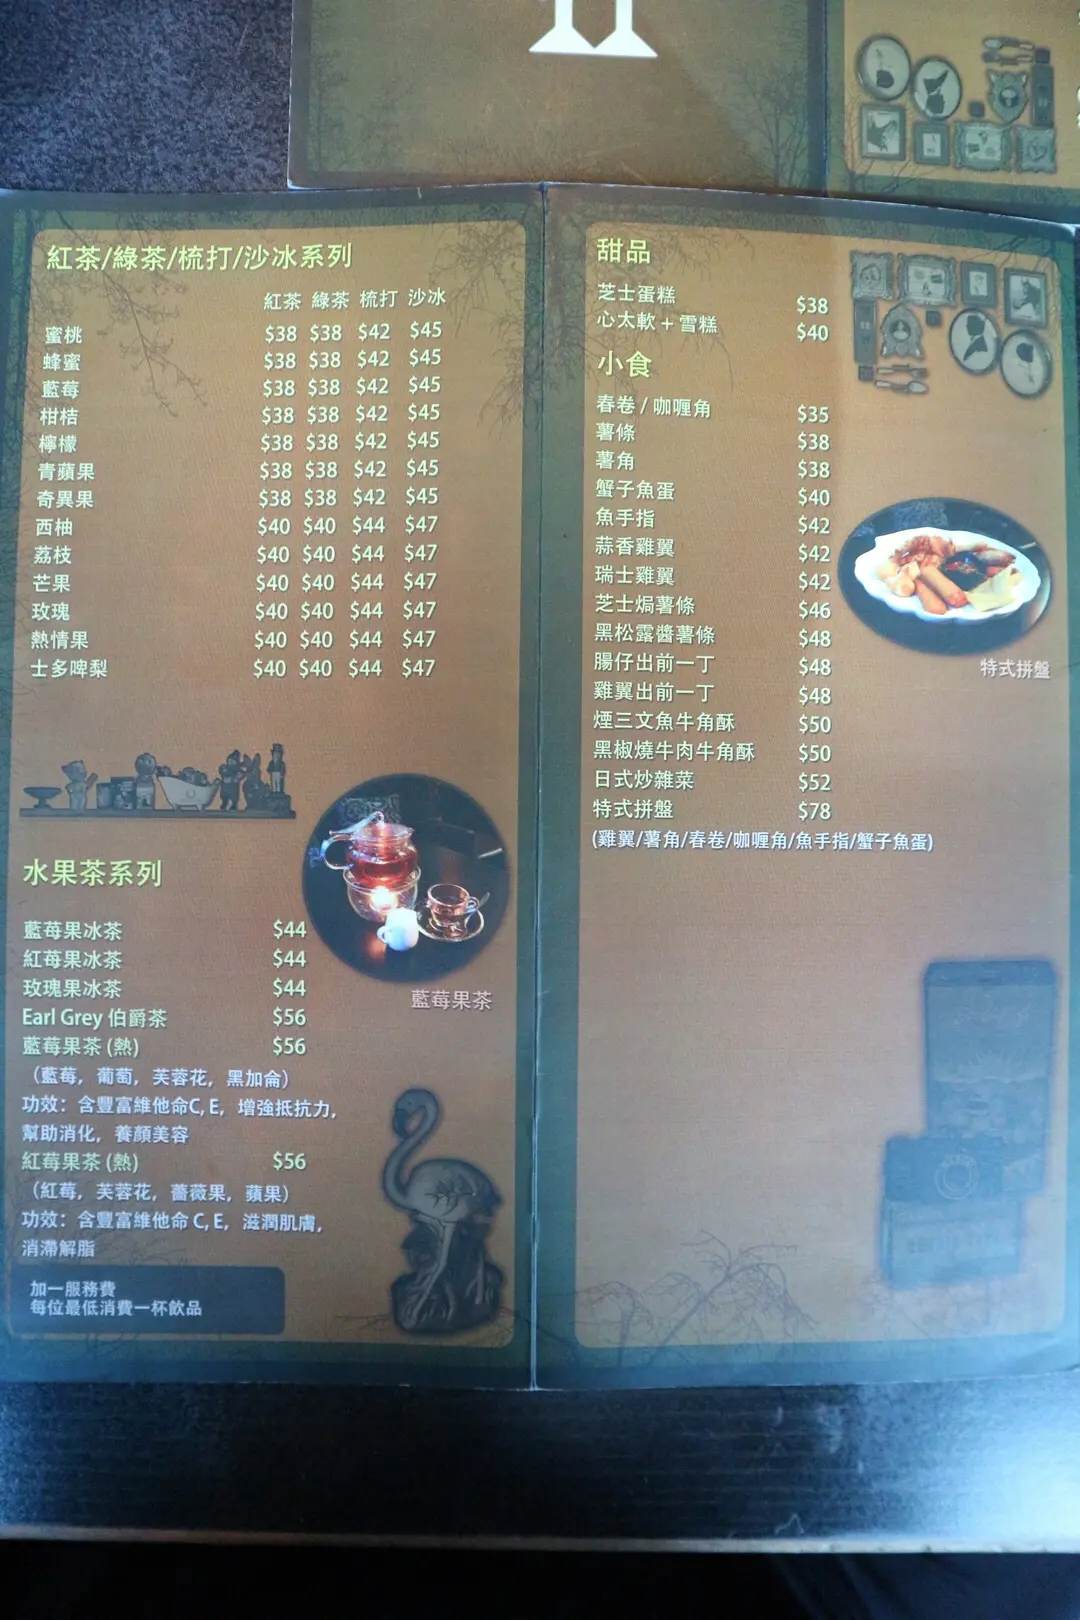 紅茶/綠茶/梳打/沙冰系列
紅茶 綠茶 梳打 沙冰
蜜桃 $38 $38 $42 $45
蜂蜜 $38 $38 $42 $45
藍莓 $38 $38 $42 $45
柑桔 $38 $38 $42 $45
檸檬 $38 $38 $42 $45
青蘋果 $38 $38 $42 $45
奇異果 $38 $38 $42 $45
西柚 $40 $40 $44 $47
荔枝 $40 $40 $44 $47
芒果 $40 $40 $44 $47
玫瑰 $40 $40 $44 $47
熱情果 $40 $40 $44 $47
士多啤梨 $40 $40 $44 $47
水果茶系列
藍莓果冰茶 $44
紅莓果冰茶 $44
玫瑰果冰茶 $44
Earl Grey 伯爵茶 $56
藍莓果茶 (熱) $56
（藍莓，葡萄，芙蓉花，黑加侖）
功效：含豐富維他命C, E，增強抵抗力，
幫助消化，養顏美容
紅莓果茶 (熱) $56
（紅莓，芙蓉花，薔薇果，蘋果）
功效：含豐富維他命 C, E，滋潤肌膚，
消滯解脂
藍莓果茶
加一服務費
每位最低消費一杯飲品
甜品
芝士蛋糕 $38
心太軟 + 雪糕 $40
小食
春卷 / 咖喱角 $35
薯條 $38
薯角 $38
蟹子魚蛋 $40
魚手指 $42
蒜香雞翼 $42
瑞士雞翼 $42
芝士焗薯條 $46
黑松露醬薯條 $48
腸仔出前一丁 $48
雞翼出前一丁 $48
煙三文魚牛角酥 $50
黑椒燒牛肉牛角酥 $50
日式炒雜菜 $52
特式拼盤 $78
(雞翼/薯角/春卷/咖喱角/魚手指/蟹子魚蛋)
特式拼盤